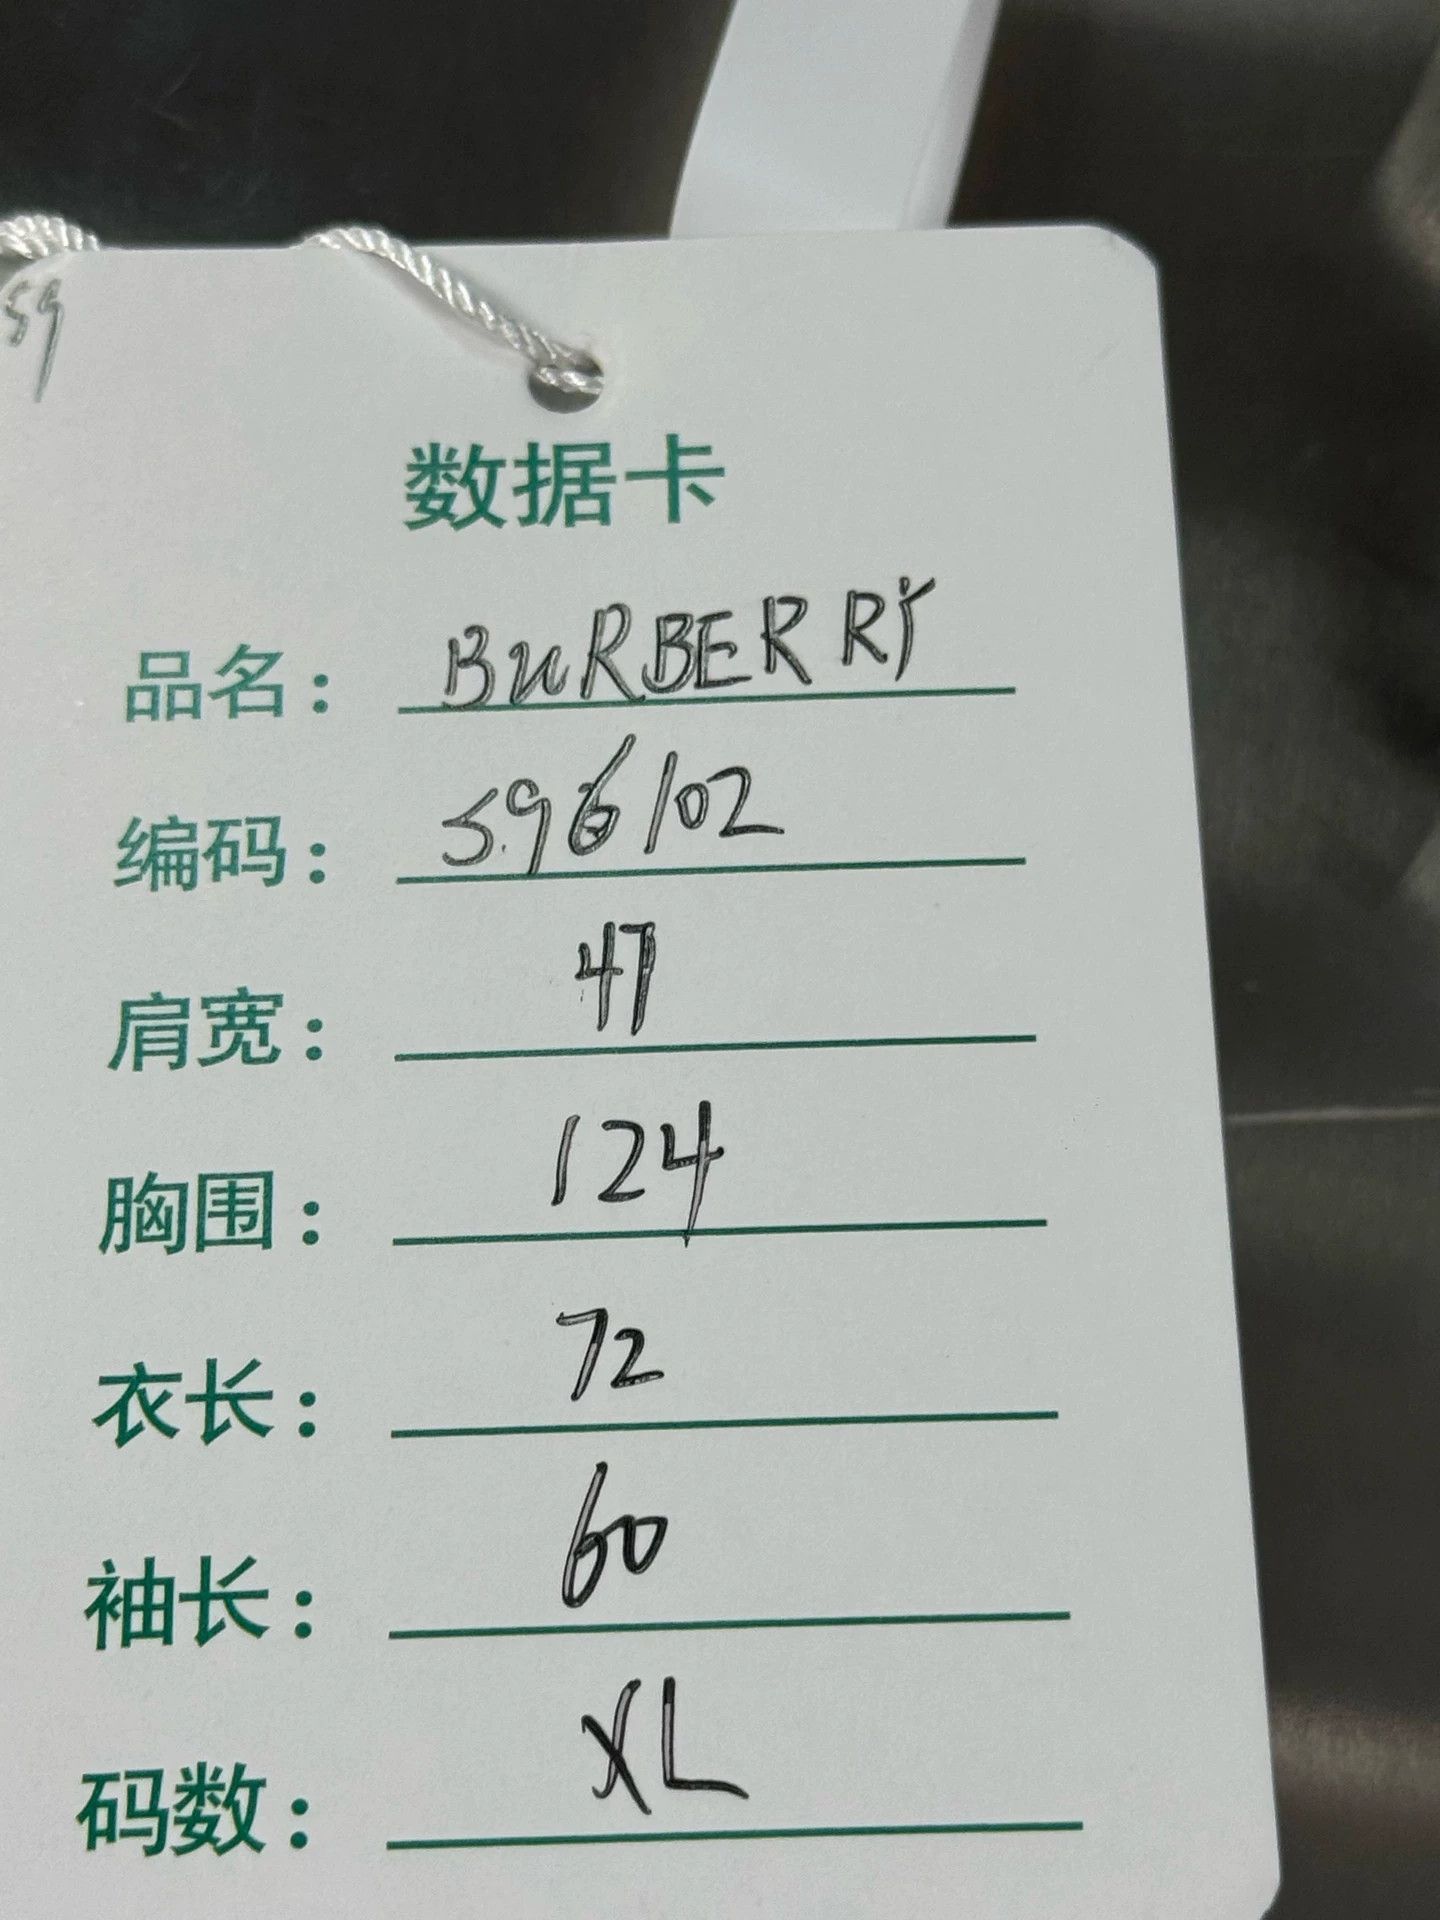 59
数据卡
品名: BURBERRY
编码: 596102
肩宽: 47
胸围: 124
衣长: 72
袖长: 60
码数: XL